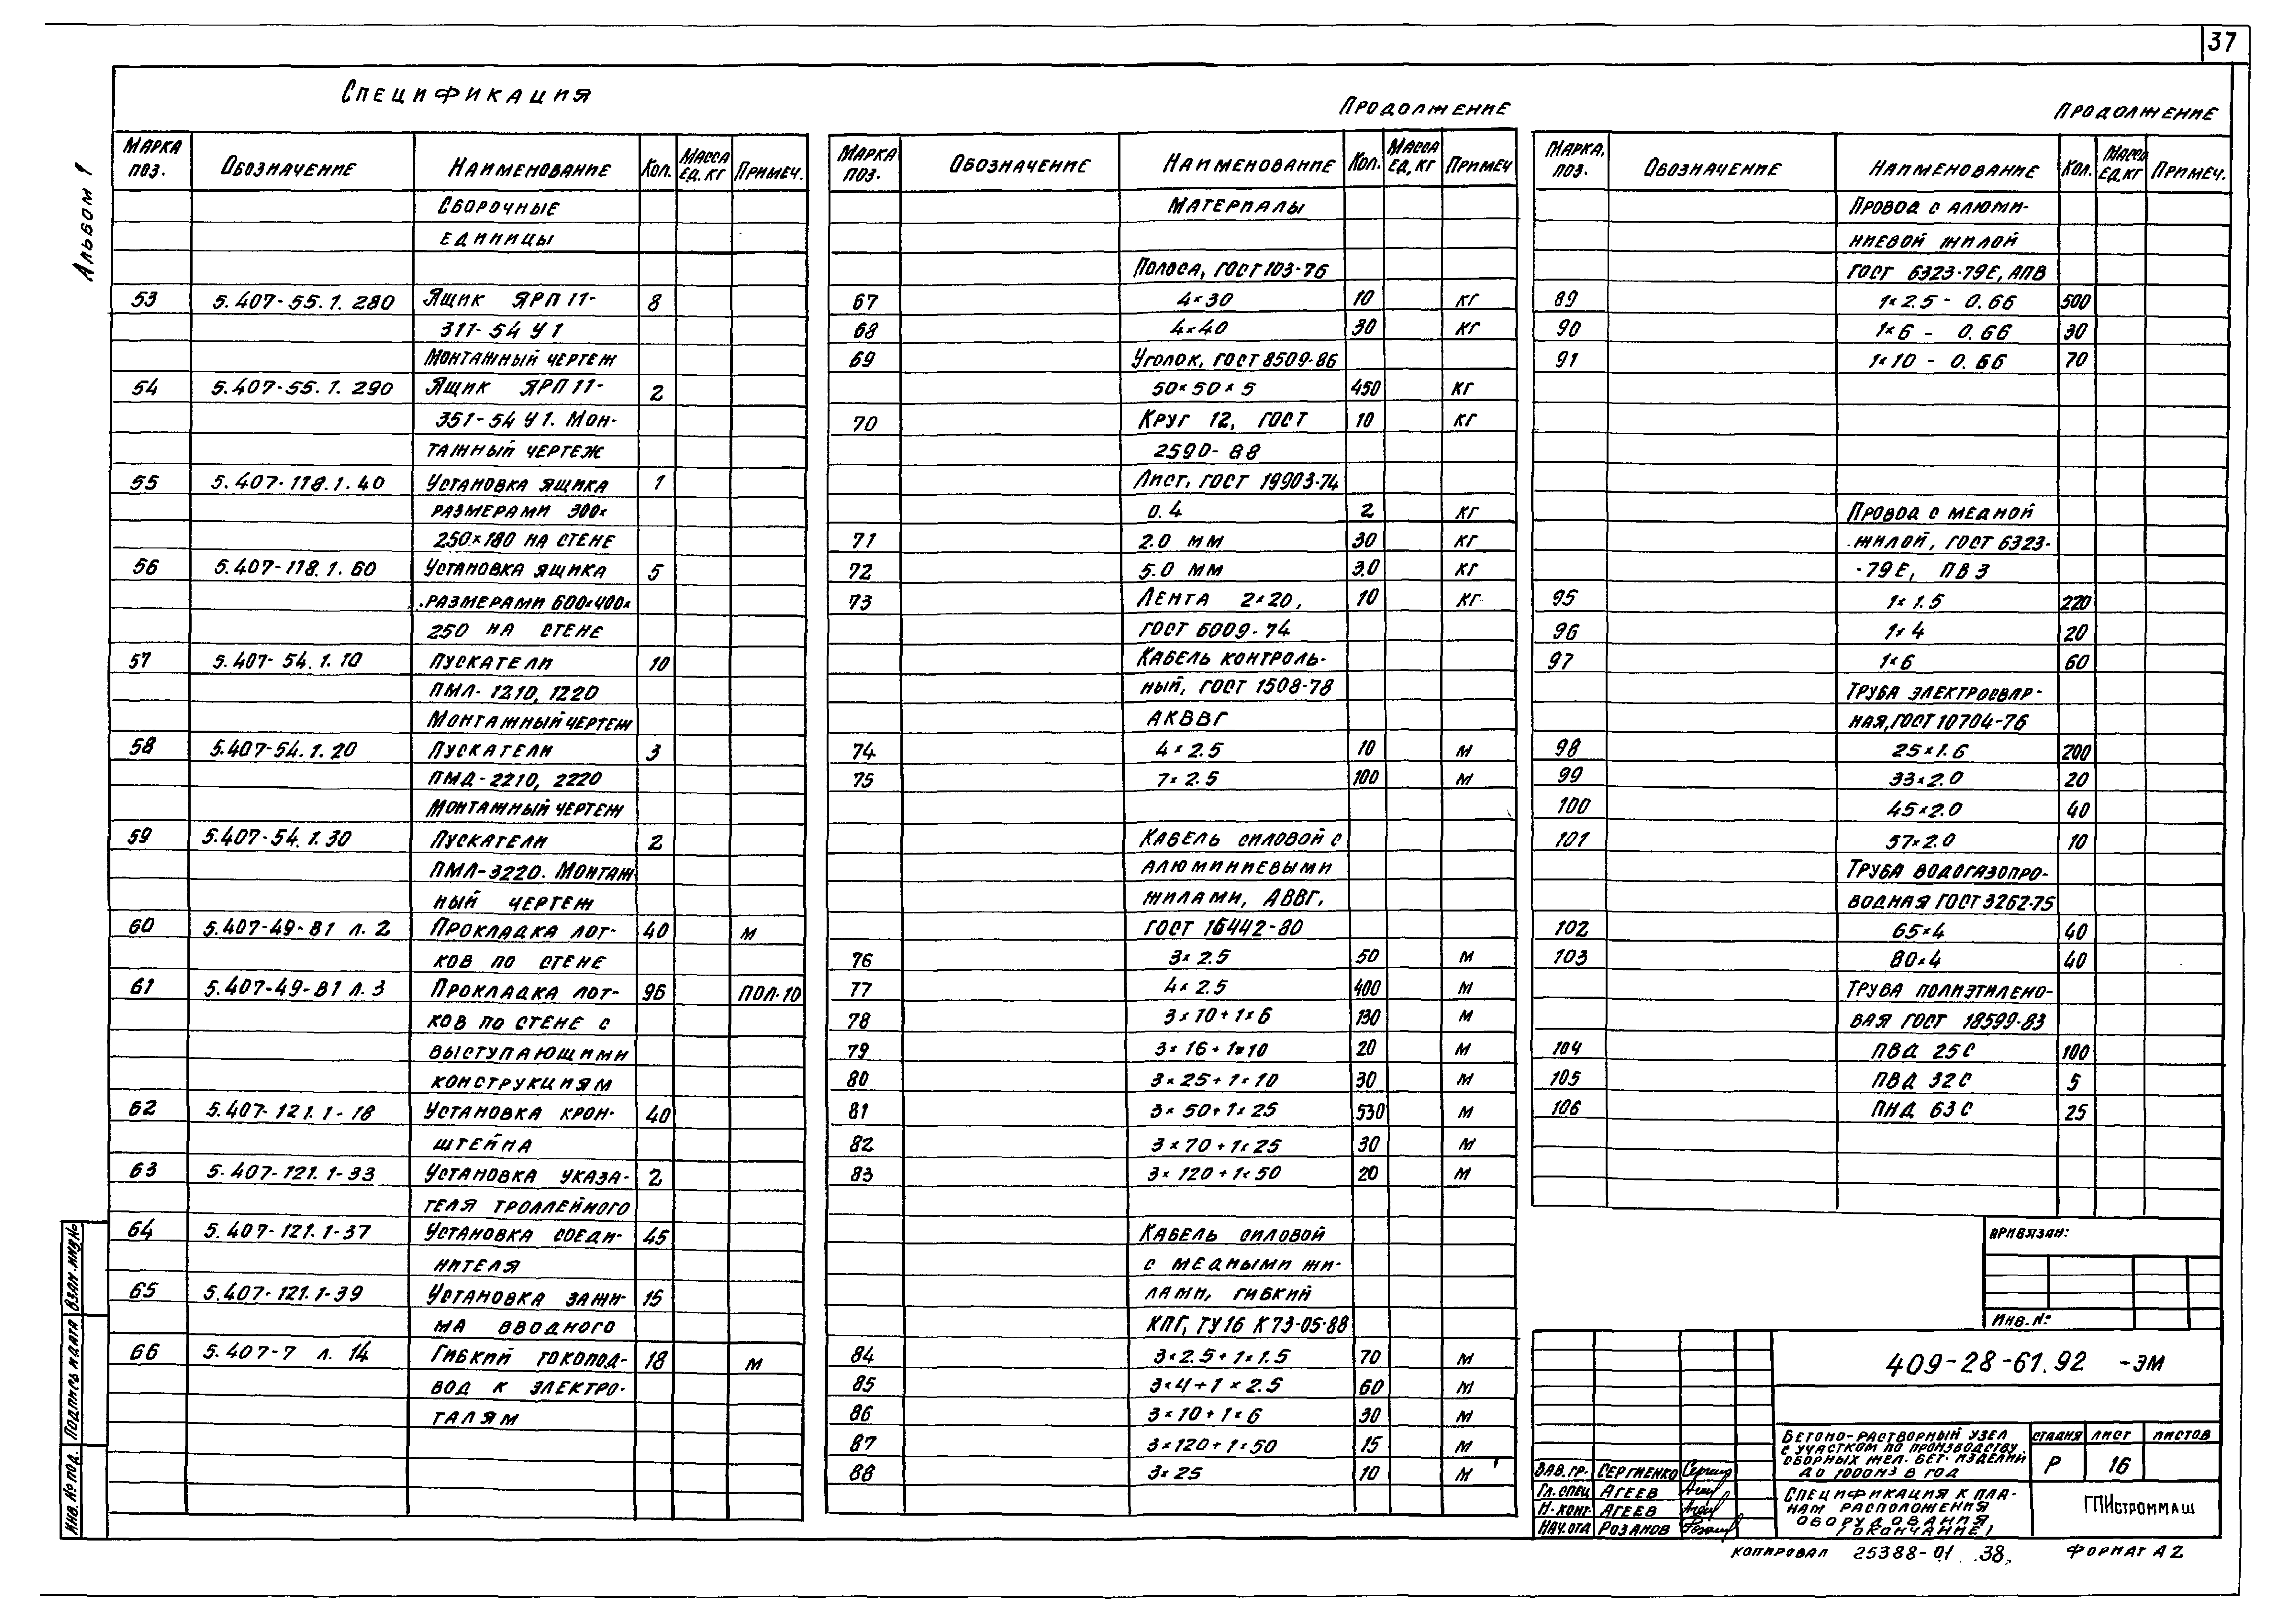 37
Альбом 1
Спецификация
Марка поз. Обозначение Наименование Кол. Масса ед. кг Примеч.
Сборочные
единицы
53 5.407-55.1.280 Ящик ЯРП 11- 8
311-54 У1
Монтажный чертеж
54 5.407-55.1.290 Ящик ЯРП 11- 2
351-54 У1. Мон-
тажный чертеж
55 5.407-118.1.40 Установка ящика 1
размерами 300×
250×180 на стене
56 5.407-118.1.60 Установка ящика 5
размерами 600×400×
250 на стене
57 5.407-54.1.10 Пускатели 10
ПМЛ-1210, 1220
Монтажный чертеж
58 5.407-54.1.20 Пускатели 3
ПМД-2210, 2220
Монтажный чертеж
59 5.407-54.1.30 Пускатели 2
ПМЛ-3220. Монтаж
ный чертеж
60 5.407-49-81 л. 2 Прокладка лот- 40 м
ков по стене
61 5.407-49-81 л. 3 Прокладка лот- 96 пол-10
ков по стене с
выступающими
конструкциям
62 5.407-121.1-18 Установка крон- 40
штейна
63 5.407-121.1-33 Установка указа- 2
теля троллейного
64 5.407-121.1-37 Установка соеди- 45
нителя
65 5.407-121.1-39 Установка зажи- 15
ма вводного
66 5.407-7 л. 14 Гибкий токопод- 18 м
вод к электро-
талям
Продолжение
Марка поз. Обозначение Наименование Кол. Масса ед, кг Примеч
Материалы
Полоса, ГОСТ 103-76
67 4×30 10 кг
68 4×40 30 кг
69 Уголок, ГОСТ 8509-86
50×50×5 450 кг
70 Круг 12, ГОСТ 10 кг
2590-88
Лист, ГОСТ 19903-74
0.4 2 кг
71 2.0 мм 30 кг
72 5.0 мм 3,0 кг
73 Лента 2×20, 10 кг
ГОСТ 6009-74
Кабель контроль-
ный, ГОСТ 1508-78
АКВВГ
74 4×2.5 10 м
75 7×2.5 100 м
Кабель силовой с
алюминиевыми
жилами, АВВГ,
ГОСТ 16442-80
76 3×2.5 50 м
77 4×2.5 400 м
78 3×10+1×6 130 м
79 3×16+1×10 20 м
80 3×25+1×10 30 м
81 3×50+1×25 530 м
82 3×70+1×25 30 м
83 3×120+1×50 20 м
Кабель силовой
с медными жи-
лами, гибкий
КПГ, ТУ16 К73-05-88
84 3×2.5+1×1.5 70 м
85 3×4+1×2.5 60 м
86 3×10+1×6 30 м
87 3×120+1×50 15 м
88 3×25 10 м
Продолжение
Марка, поз. Обозначение Наименование Кол. Масса ед, кг Примеч.
Провод с алюми-
ниевой жилой
ГОСТ 6323-79Е, АПВ
89 1×2.5 - 0.66 500
90 1×6 - 0.66 30
91 1×10 - 0.66 70
Провод с медной
жилой, ГОСТ 6323-
-79Е, ПВ3
95 1×1.5 220
96 1×4 20
97 1×6 60
Труба электросвар-
ная, ГОСТ 10704-76
98 25×1.6 200
99 33×2.0 20
100 45×2.0 40
101 57×2.0 10
Труба водогазопро-
водная ГОСТ 3262-75
102 65×4 40
103 80×4 40
Труба полиэтилено-
вая ГОСТ 18599-83
104 ПВД 25С 100
105 ПВД 32С 5
106 ПНД 63С 25
Привязан:
Инв. №
409-28-61.92 -ЭМ
Бетоно-растворный узел
с участком по производству
сборных жел. бет. изделий
до 1000м3 в год
стадия лист листов
Р 16
Зав. гр. Сергиенко
Гл. спец Агеев
Н. конт. Агеев
Нач. отд Розанов
Спецификация к пла-
нам расположения
оборудования
(окончание)
ГПИстроммаш
Копировал 25388-01 38 Формат А2
Инв. № под. Подпись и дата Взам. инв. №